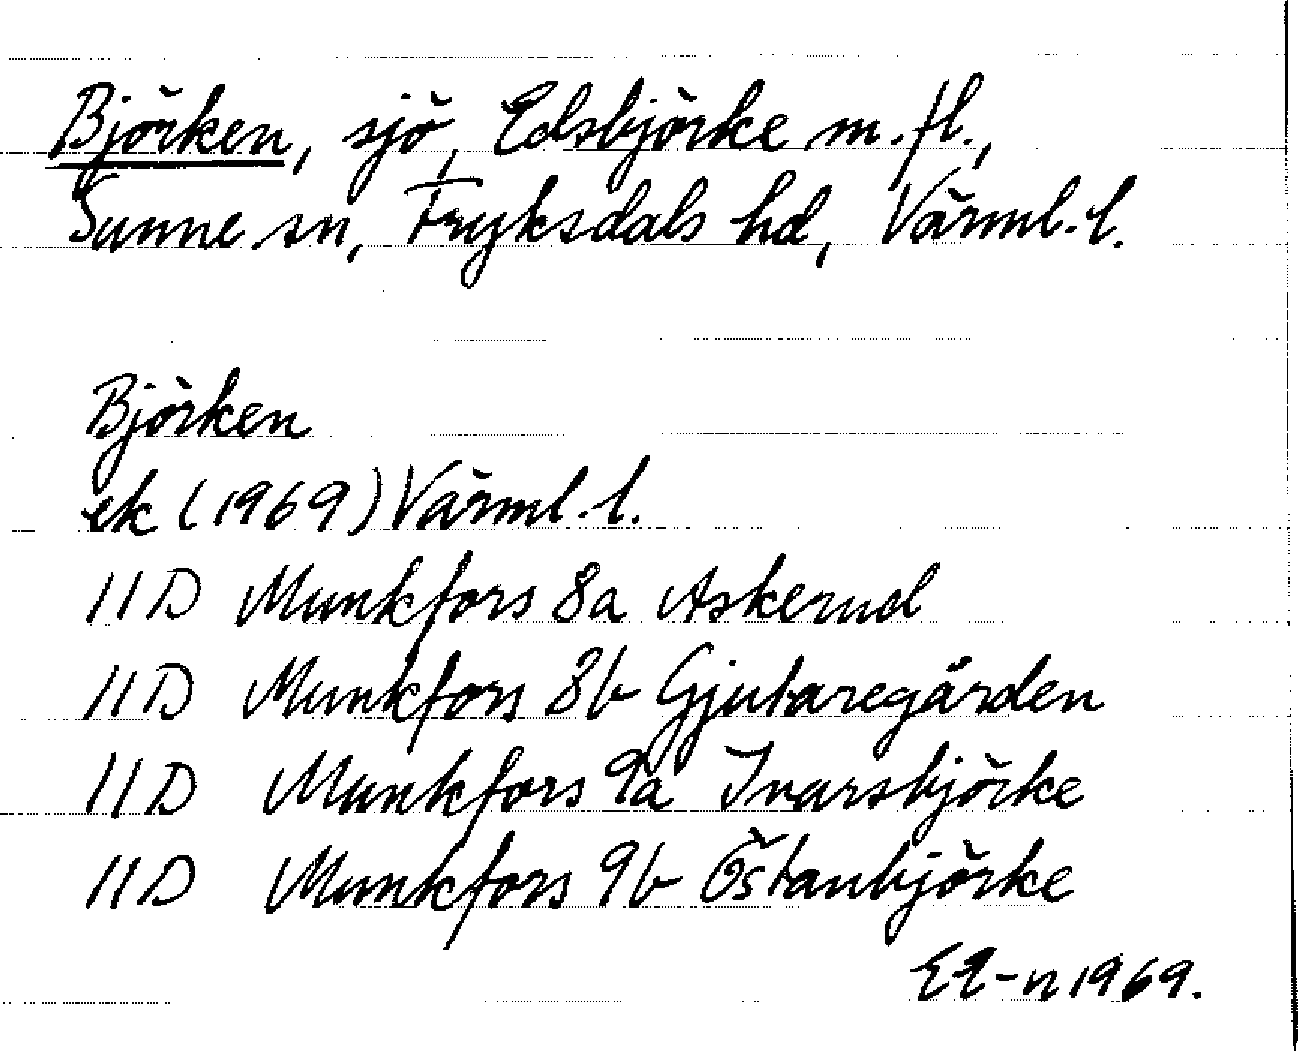 Björken, sjö, Edsbjörke m.fl.,
Sunne sn, Fryksdals hd, Värml. l.
Björken
ek (1969) Värml. l.
11D Munkfors 8a Askerud
11D Munkfors 8b Gjutaregården
11D Munkfors 9a Ivarsbjörke
11D Munkfors 9b Östanbjörke
1969.